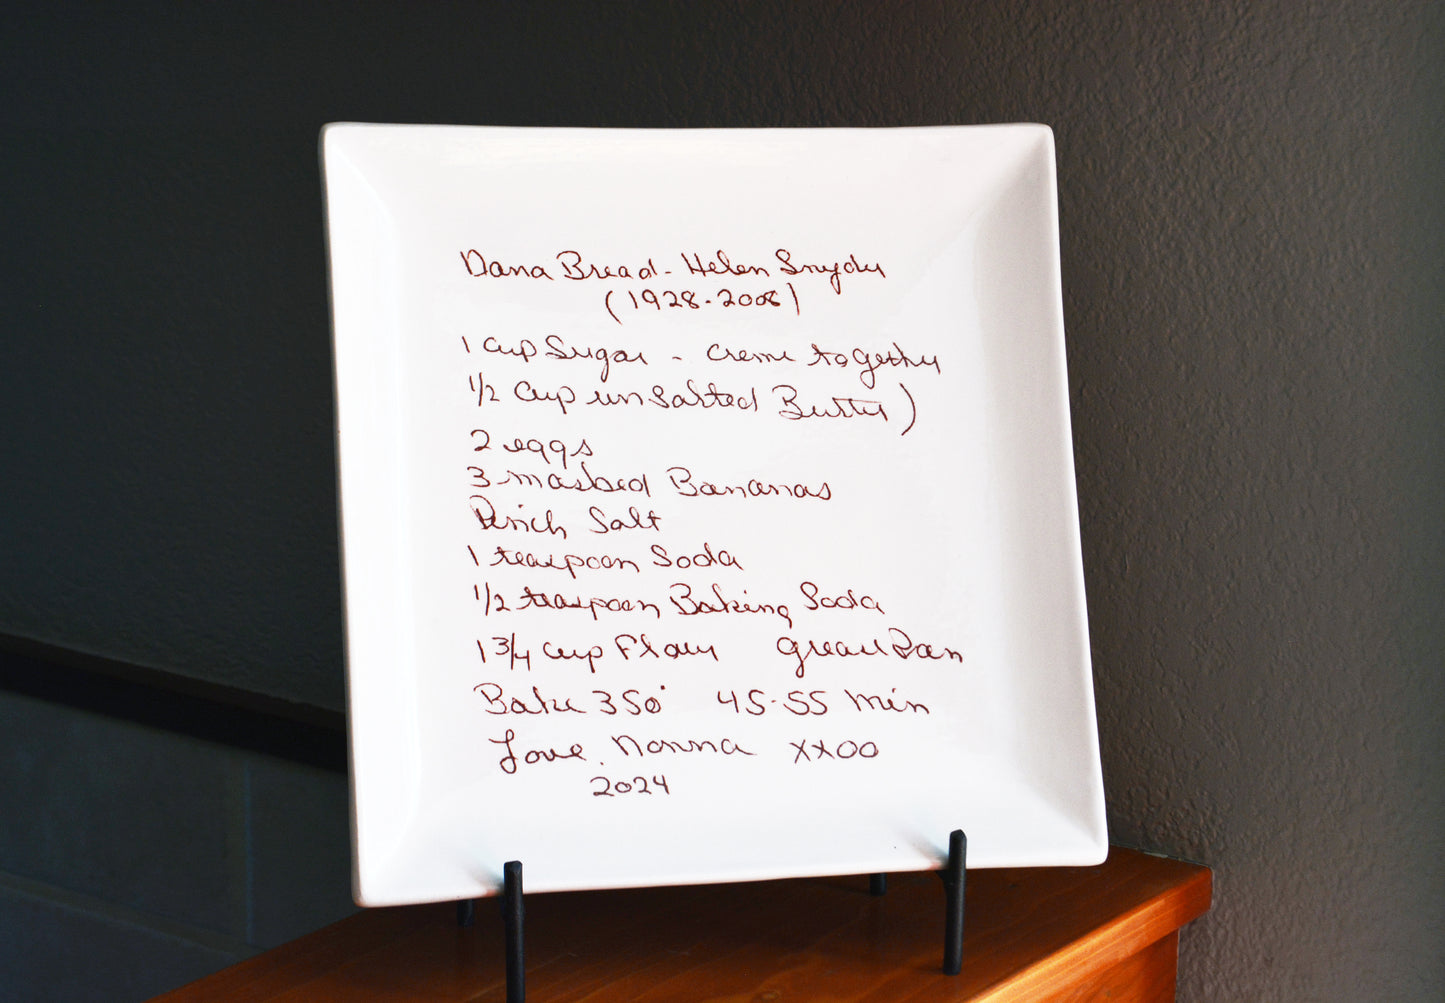 Nana Bread - Helen Snyder
(1928-2008)
1 cup Sugar - creme together
1/2 cup unsalted Butter)
2 eggs
3 mashed Bananas
Pinch Salt
1 teaspoon Soda
1/2 teaspoon Baking Soda
1 3/4 cup Flour grease Pan
Bake 350° 45-55 min
Love, Nonna xxoo
2024